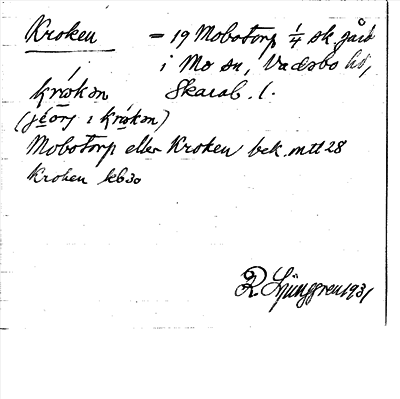 Kroken = 19 Mobotorp 1/4 sk. gård
i Mo sn, Vadsbo hd,
krókən Skarab. l.
(jéörj i krókən)
Mobotorp eller Kroken bek. mtl 28
Kroken kb 30
R. Ljunggren 1931